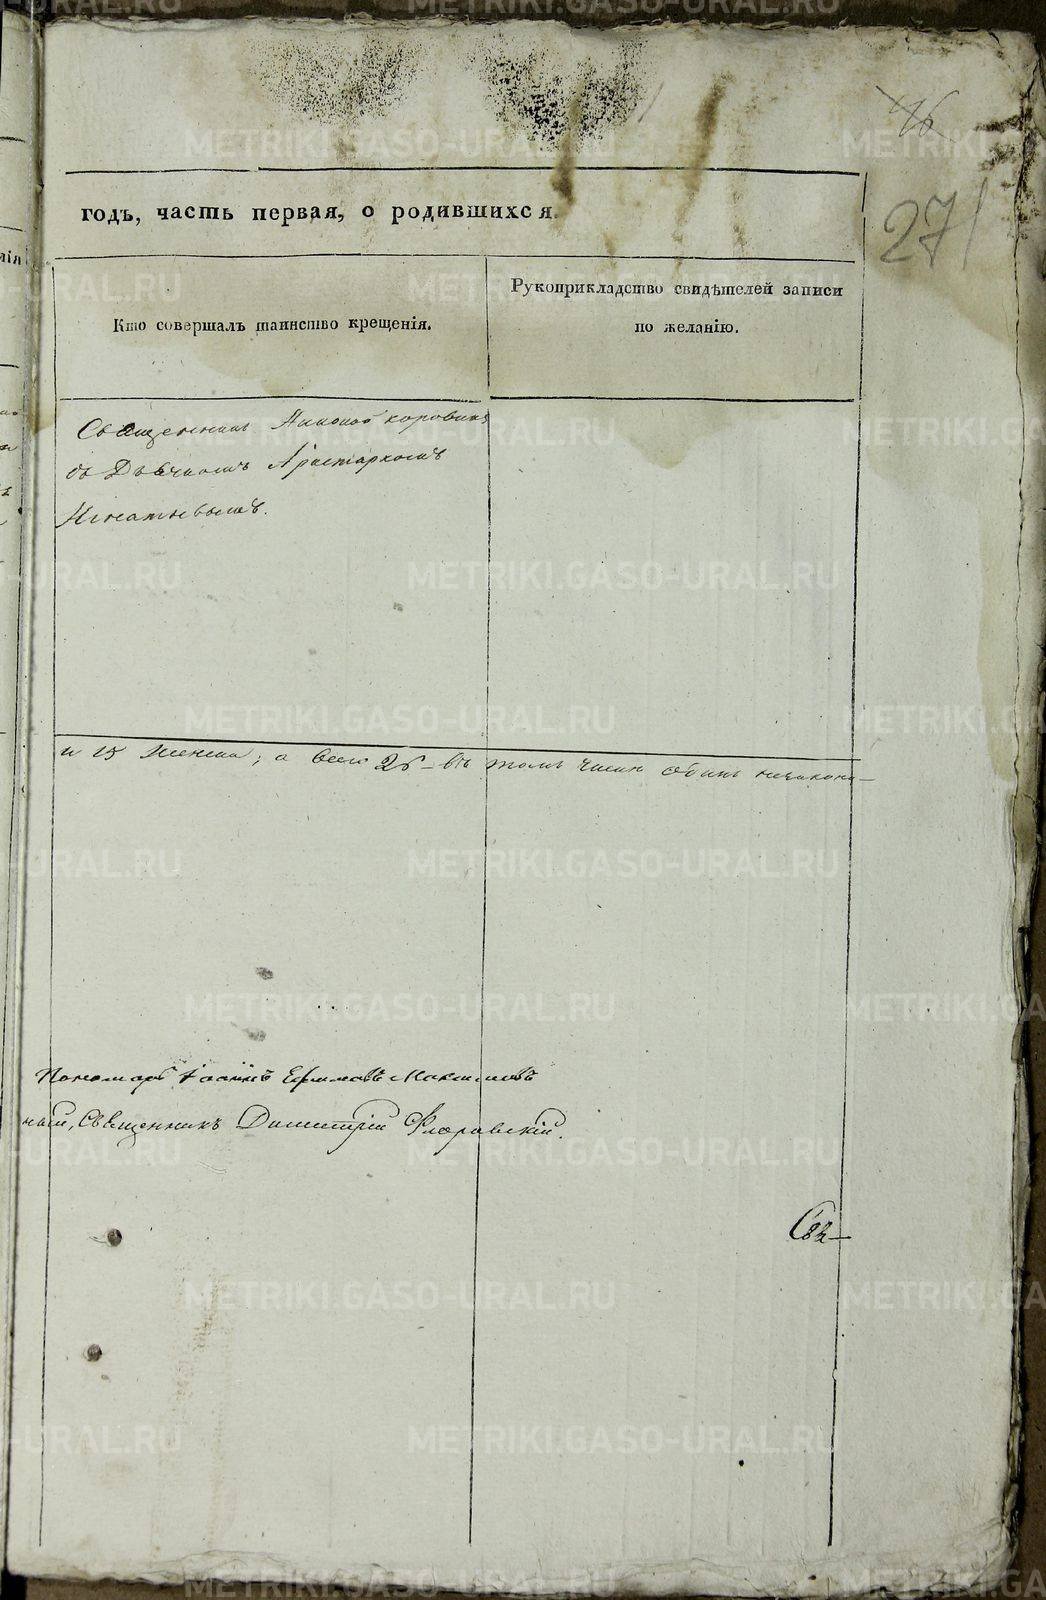 46
27
годъ, часть первая, о родившихся.
нія
Кто совершалъ таинство крещенія.
Рукоприкладство свидѣтелей записи
по желанію.
Священникъ Коровинъ
съ Дьячкомъ Аристархомъ
Игнатьевымъ.
и 15 женска; а всего 26 въ томъ числѣ одинъ незакон-
Пономарь Іоаннъ Ефимовъ Максимовъ
Священникъ Димитрій Флоровскій.
METRIKI.GASO-URAL.RU